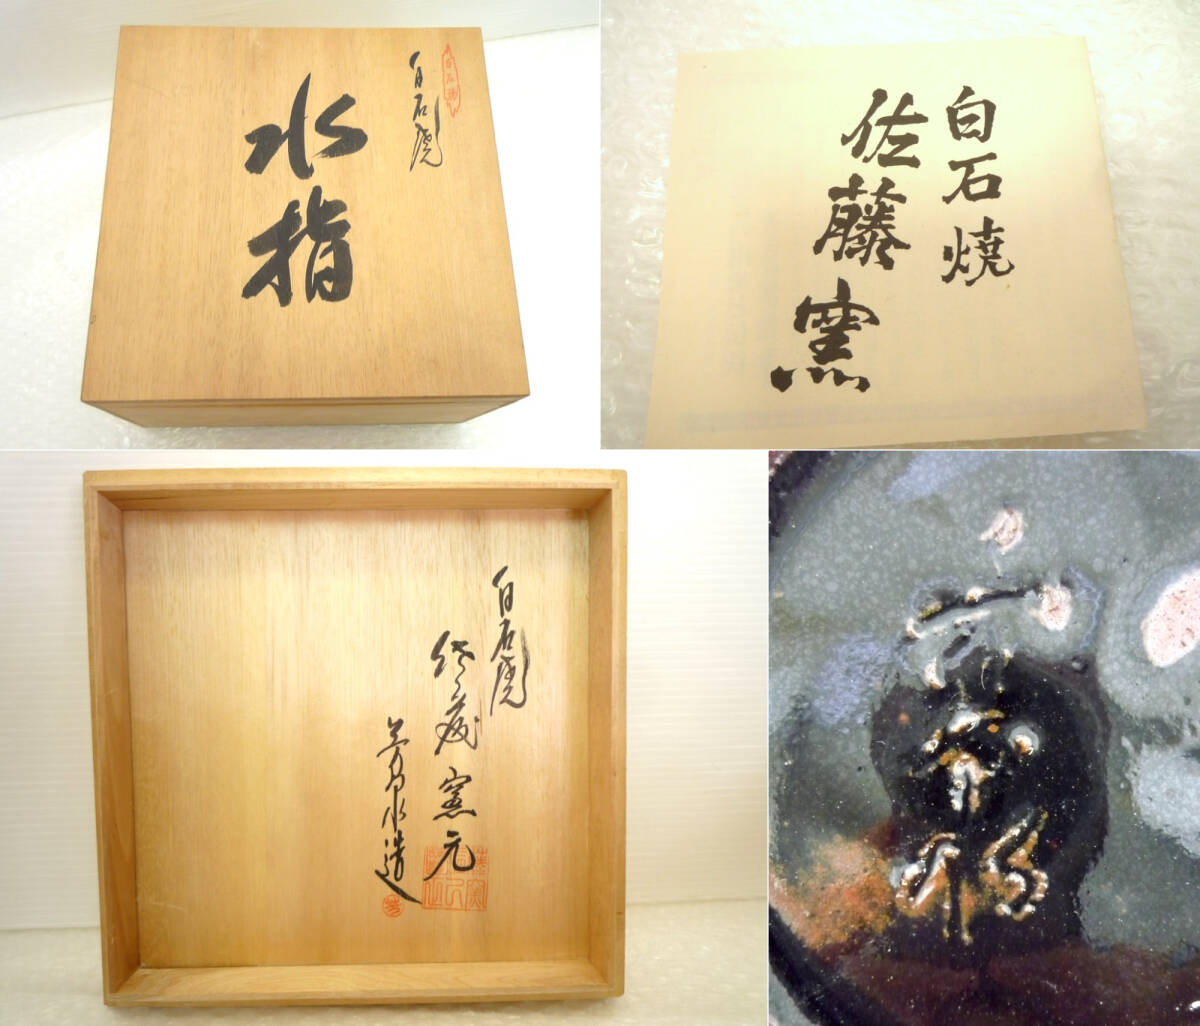 白石焼
水指
白石焼
佐藤窯
白石焼
佐藤窯元
芳水造